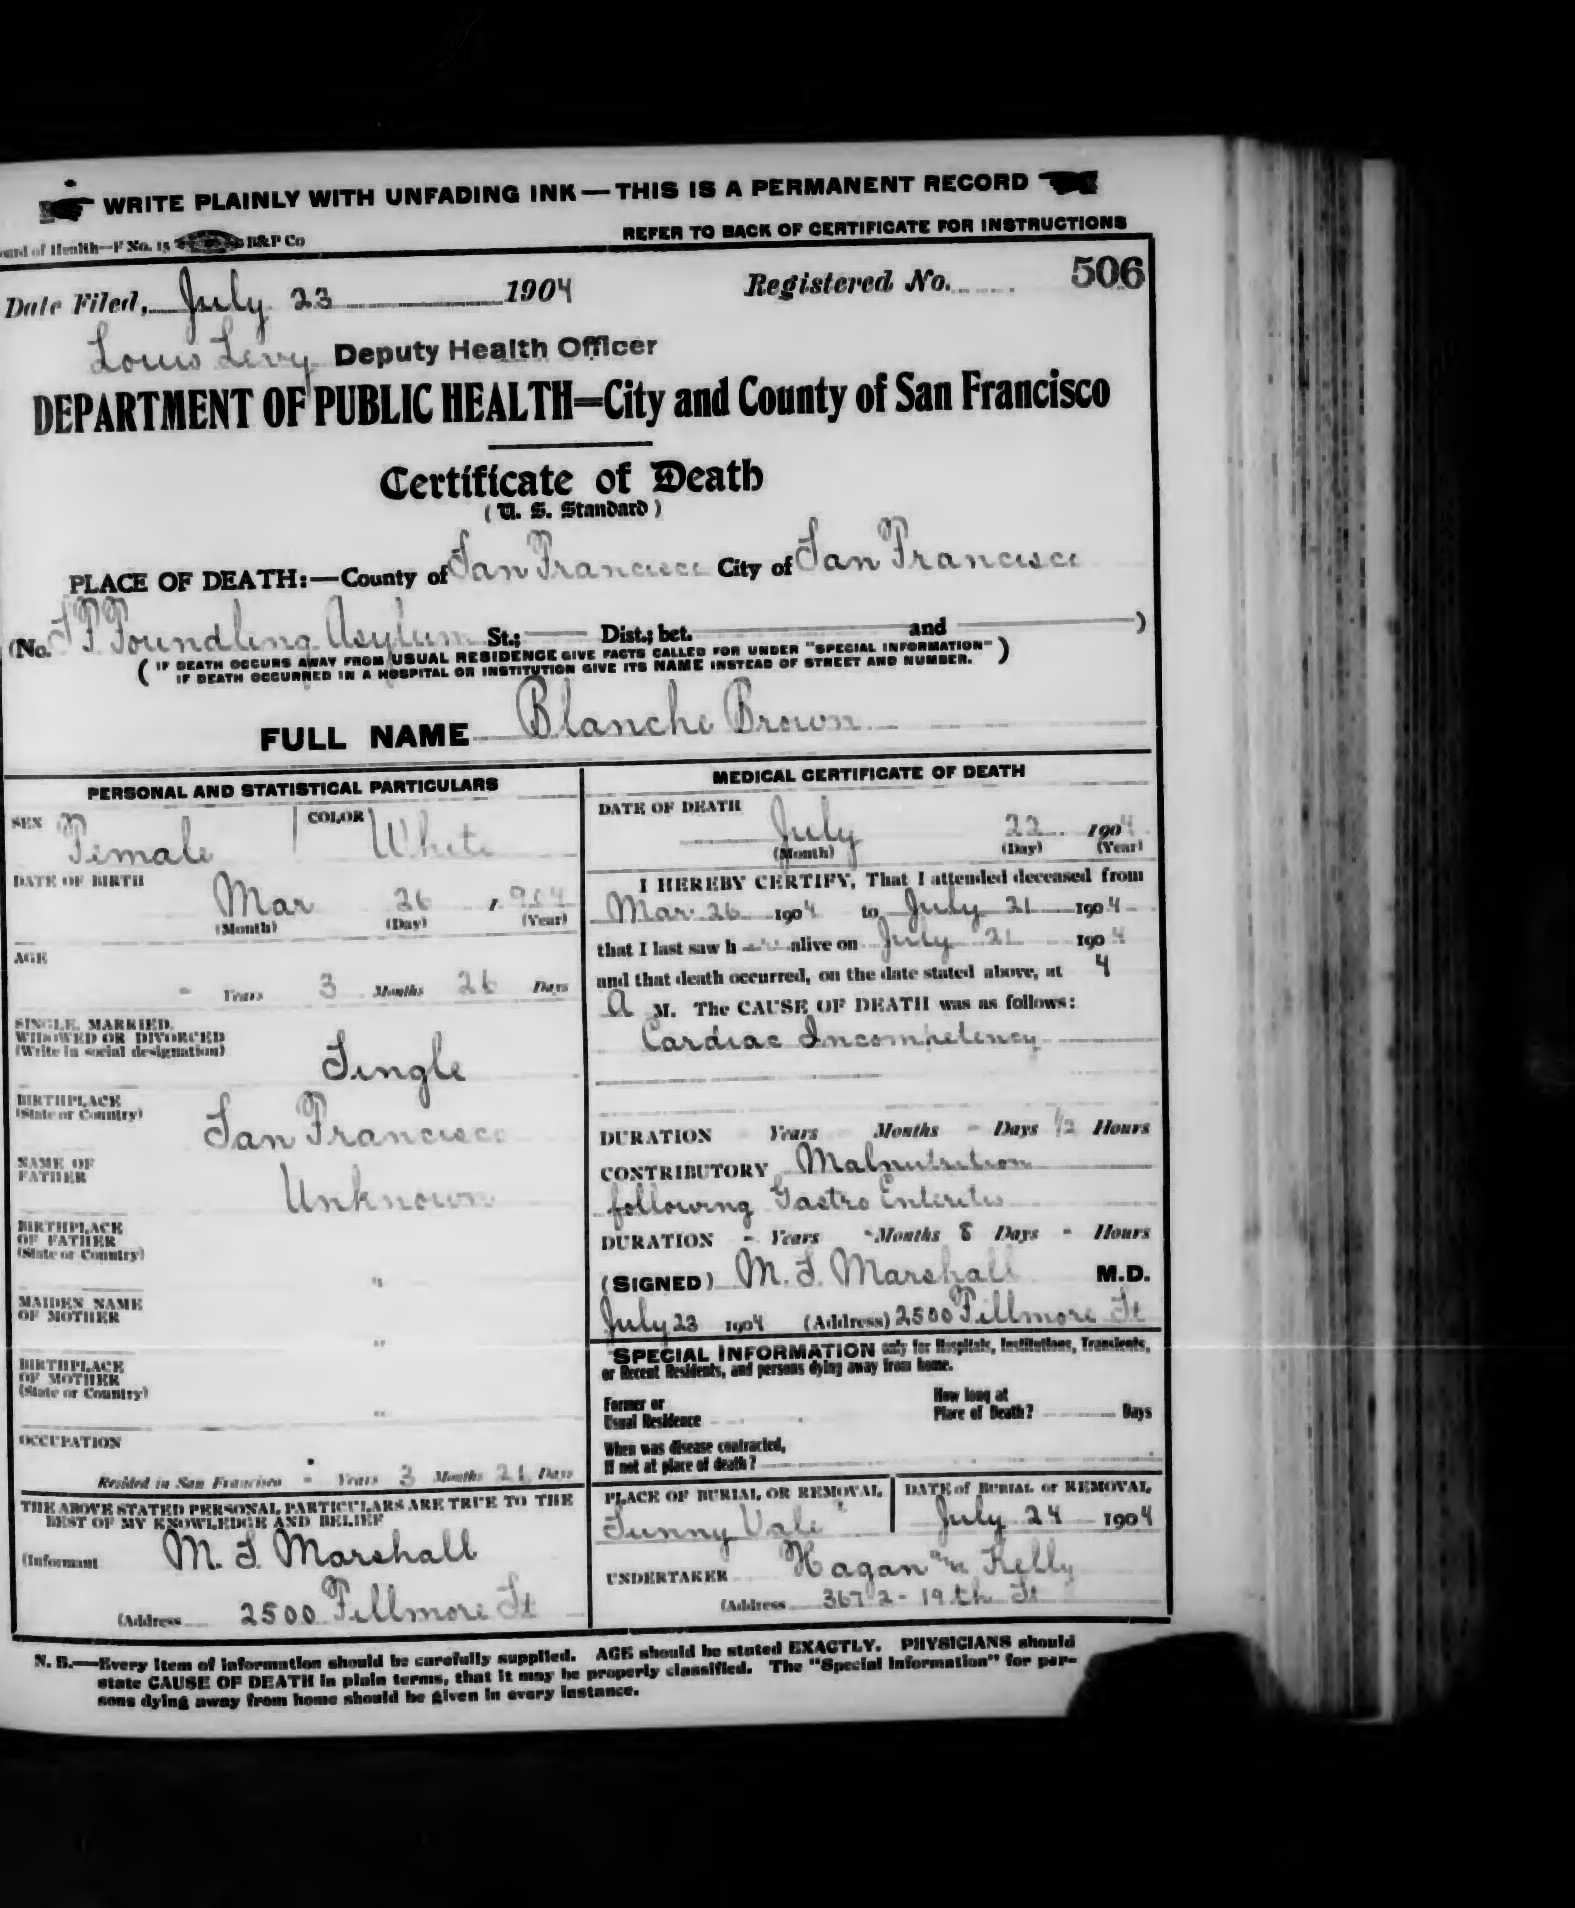 WRITE PLAINLY WITH UNFADING INK—THIS IS A PERMANENT RECORD
oard of Health—F No. 15 B&P Co
REFER TO BACK OF CERTIFICATE FOR INSTRUCTIONS
Date Filed, July 23 1904 Registered No. 506
Louis Levy Deputy Health Officer
DEPARTMENT OF PUBLIC HEALTH=City and County of San Francisco
Certificate of Death
(U. S. Standard)
PLACE OF DEATH:—County of San Francisco City of San Francisco
(No. S F Foundling Asylum St.; Dist.; bet. and )
(IF DEATH OCCURS AWAY FROM USUAL RESIDENCE GIVE FACTS CALLED FOR UNDER "SPECIAL INFORMATION"
IF DEATH OCCURRED IN A HOSPITAL OR INSTITUTION GIVE ITS NAME INSTEAD OF STREET AND NUMBER.)
FULL NAME Blanche Brown
PERSONAL AND STATISTICAL PARTICULARS
SEX Female COLOR White
DATE OF BIRTH
Mar 26 1904
(Month) (Day) (Year)
AGE
- Years 3 Months 26 Days
SINGLE, MARRIED,
WIDOWED OR DIVORCED
(Write in social designation)
Single
BIRTHPLACE
(State or Country)
San Francisco
NAME OF
FATHER
Unknown
BIRTHPLACE
OF FATHER
(State or Country)
"
MAIDEN NAME
OF MOTHER
"
BIRTHPLACE
OF MOTHER
(State or Country)
"
OCCUPATION
Resided in San Francisco - Years 3 Months 21 Days
THE ABOVE STATED PERSONAL PARTICULARS ARE TRUE TO THE
BEST OF MY KNOWLEDGE AND BELIEF
(Informant M. S. Marshall
(Address 2500 Fillmore St
MEDICAL CERTIFICATE OF DEATH
DATE OF DEATH
July 22 1904
(Month) (Day) (Year)
I HEREBY CERTIFY, That I attended deceased from
Mar. 26 1904 to July 21 1904
that I last saw h er alive on July 21 1904
and that death occurred, on the date stated above, at 4
A M. The CAUSE OF DEATH was as follows:
Cardiac Incompetency
DURATION - Years - Months - Days 1/2 Hours
CONTRIBUTORY Malnutrition
following Gastro Enteritis
DURATION - Years - Months 8 Days - Hours
(SIGNED) M. S. Marshall M.D.
July 23 1904 (Address) 2500 Fillmore St
SPECIAL INFORMATION only for Hospitals, Institutions, Transients,
or Recent Residents, and persons dying away from home.
Former or
Usual Residence
How long at
Place of Death? Days
When was disease contracted,
If not at place of death?
PLACE OF BURIAL OR REMOVAL
Sunny Vale
DATE of BURIAL or REMOVAL
July 24 1904
UNDERTAKER Hagan and Kelly
(Address 3672 - 19th St
N. B.—Every item of information should be carefully supplied. AGE should be stated EXACTLY. PHYSICIANS should
state CAUSE OF DEATH in plain terms, that it may be properly classified. The "Special Information" for per-
sons dying away from home should be given in every instance.